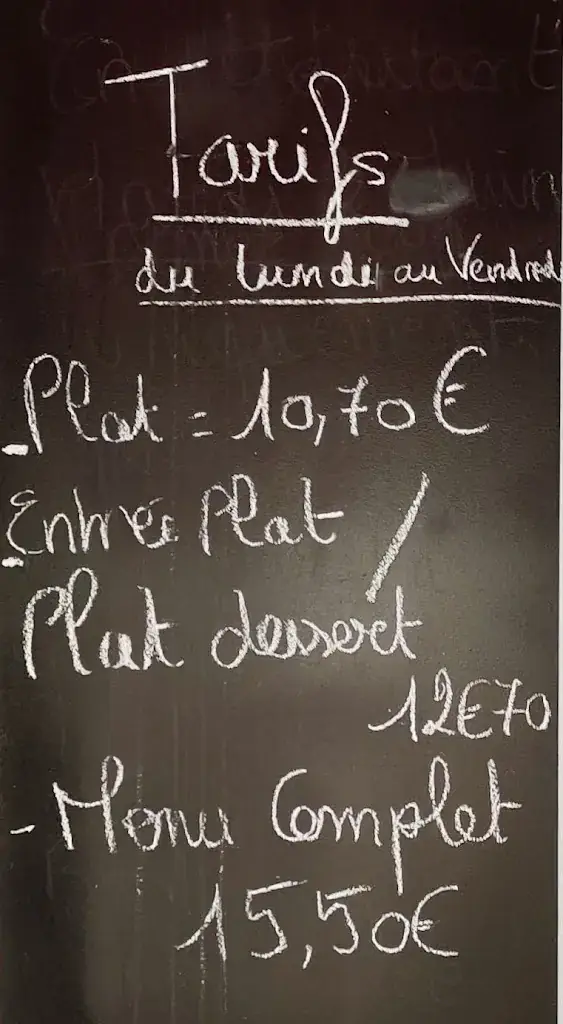 Tarifs
du lundi au Vendredi
- Plat = 10,70 €
- Entrée Plat /
Plat dessert
12€70
- Menu Complet
15,50€